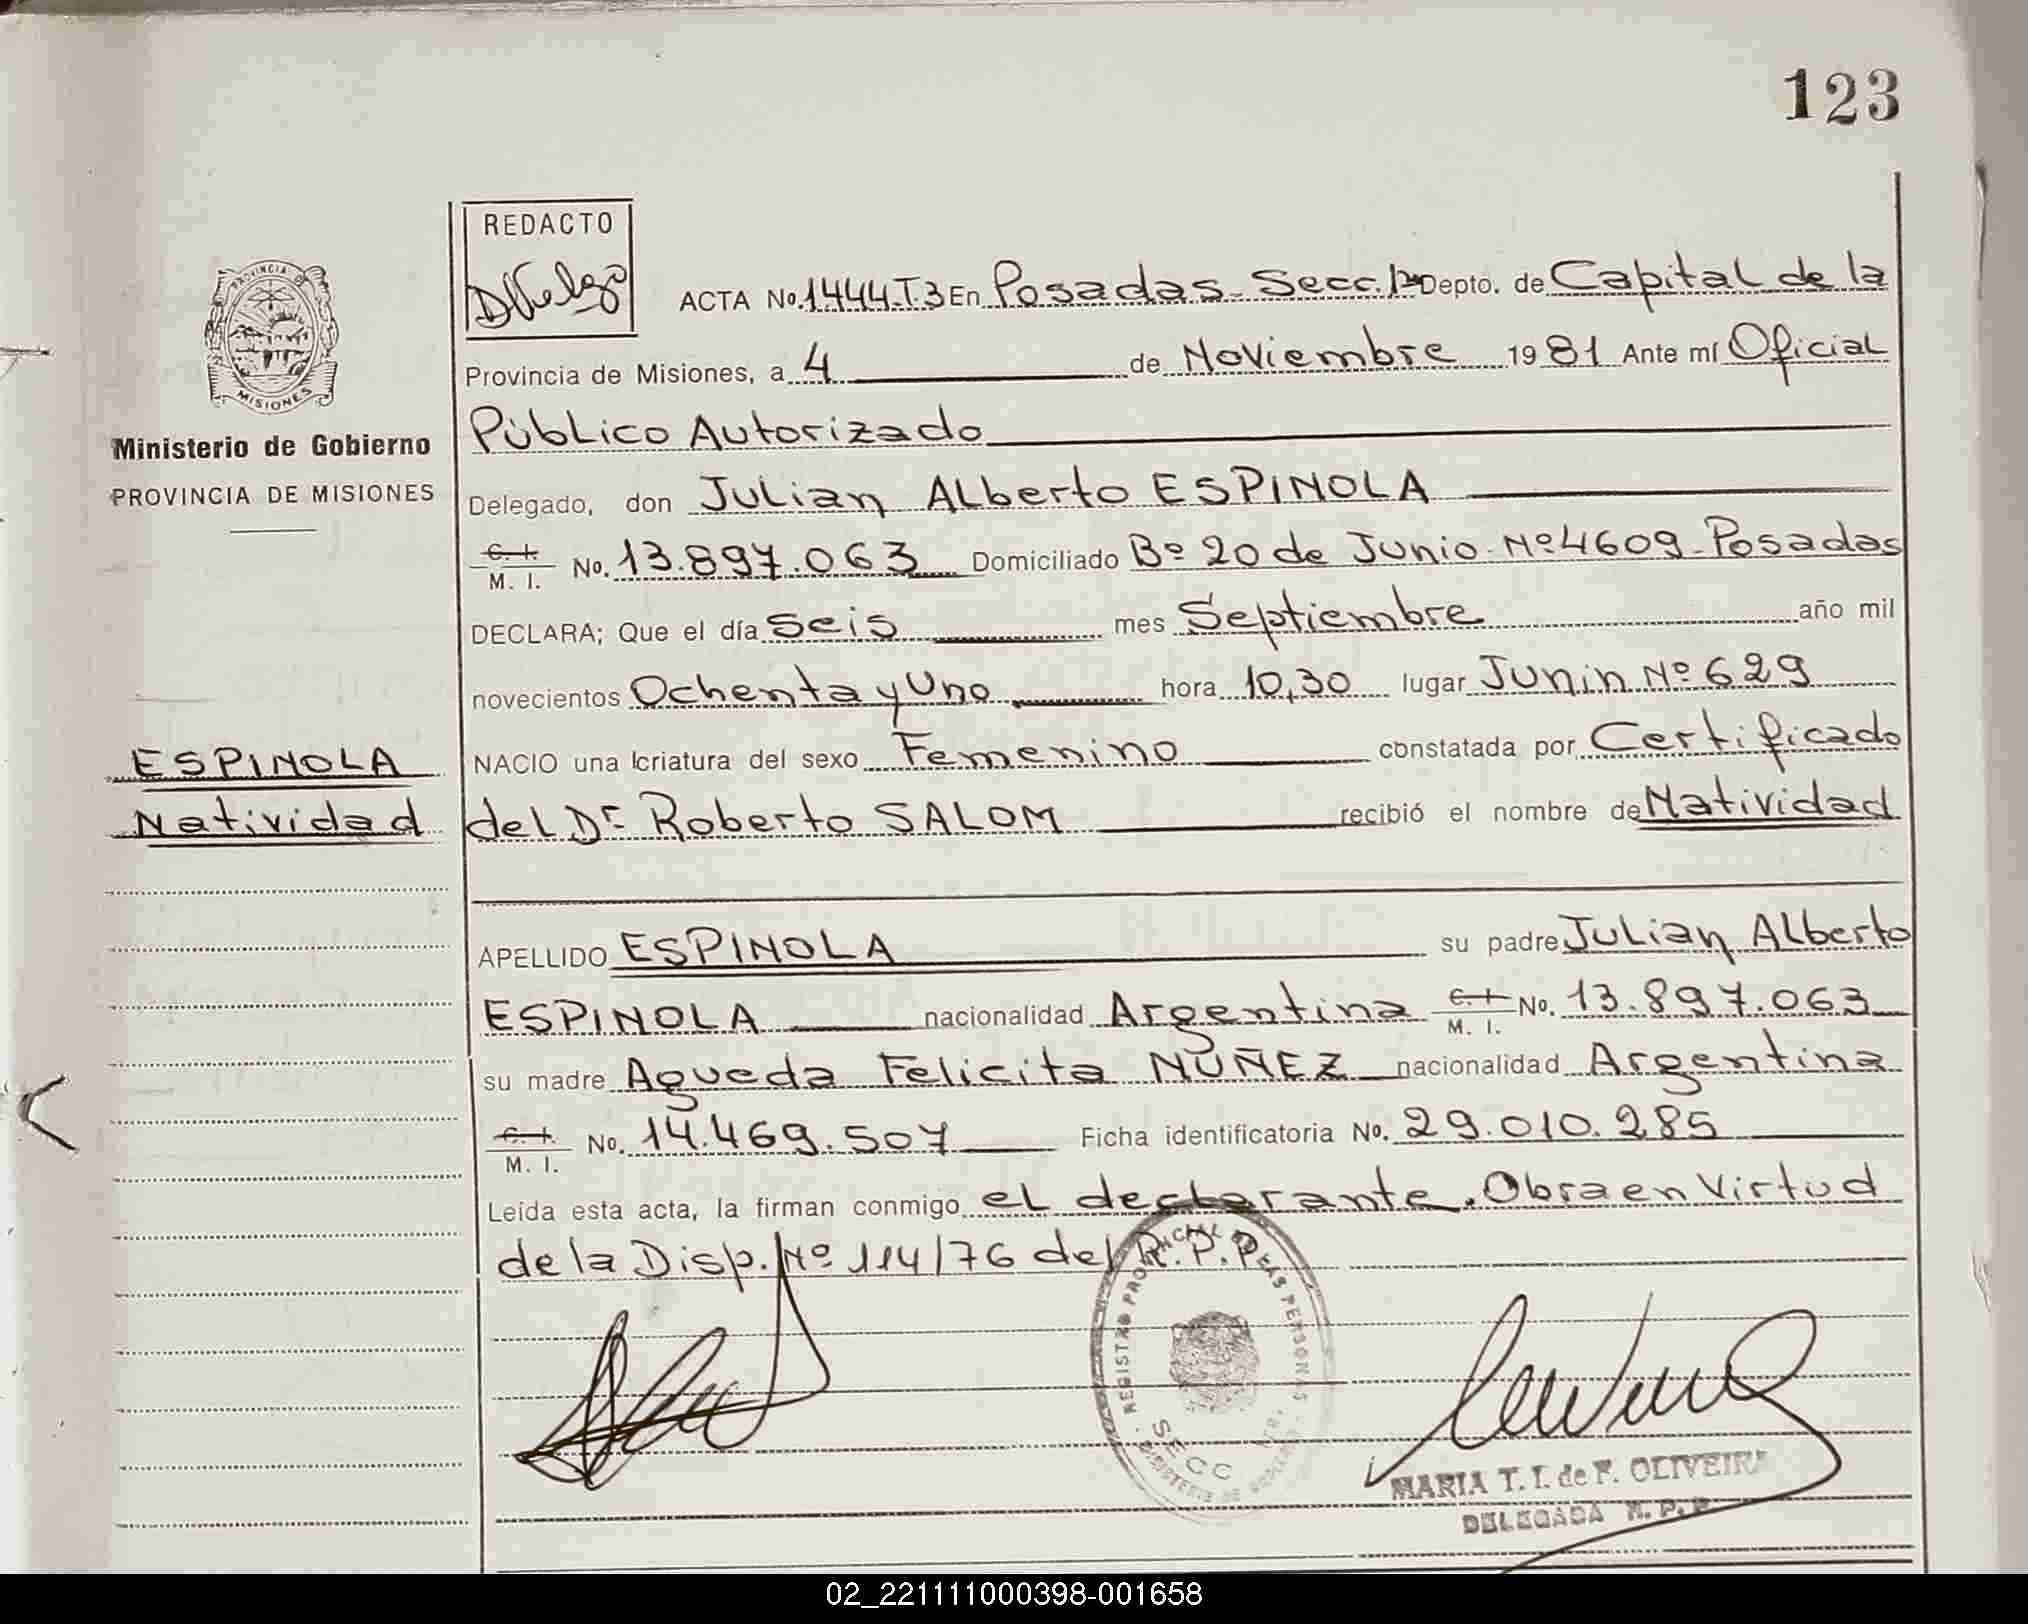 123
REDACTO
ACTA No. 1444.T.3 En Posadas - Secc. 1ª Depto. de Capital de la
Provincia de Misiones, a 4 de Noviembre 1981 Ante mí Oficial
Público Autorizado
Delegado, don Julian Alberto ESPINOLA
C. I.
M. I. No. 13.897.063 Domiciliado Bº 20 de Junio - Nº 4609 - Posadas
DECLARA; Que el día Seis mes Septiembre año mil
novecientos Ochenta y Uno hora 10,30 lugar Junin Nº 629
NACIO una criatura del sexo Femenino constatada por Certificado
del Dr Roberto SALOM recibió el nombre de Natividad
APELLIDO ESPINOLA su padre Julian Alberto
ESPINOLA nacionalidad Argentina C. I.
M. I. No. 13.897.063
su madre Agueda Felicita NÚÑEZ nacionalidad Argentina
C. I.
M. I. No. 14.469.507 Ficha identificatoria No. 29.010.285
Leída esta acta, la firman conmigo el declarante. Obra en Virtud
de la Disp. Nº 114/76 del R.P.P.
PROVINCIA DE
MISIONES
Ministerio de Gobierno
PROVINCIA DE MISIONES
ESPINOLA
Natividad
REGISTRO PROVINCIAL DE LAS PERSONAS
SECC
MARIA T. I. de F. OLIVEIRA
DELEGADA R. P. P.
02_221111000398-001658